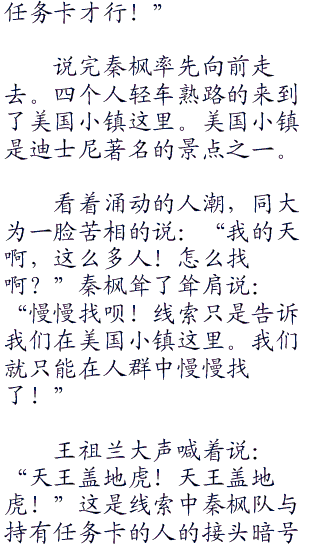 任务卡才行！”
说完秦枫率先向前走
去。四个人轻车熟路的来到
了美国小镇这里。美国小镇
是迪士尼著名的景点之一。
看着涌动的人潮，同大
为一脸苦相的说：“我的天
啊，这么多人！怎么找
啊？”秦枫耸了耸肩说：
“慢慢找呗！线索只是告诉
我们在美国小镇这里。我们
就只能在人群中慢慢找
了！”
王祖兰大声喊着说：
“天王盖地虎！天王盖地
虎！”这是线索中秦枫队与
持有任务卡的人的接头暗号